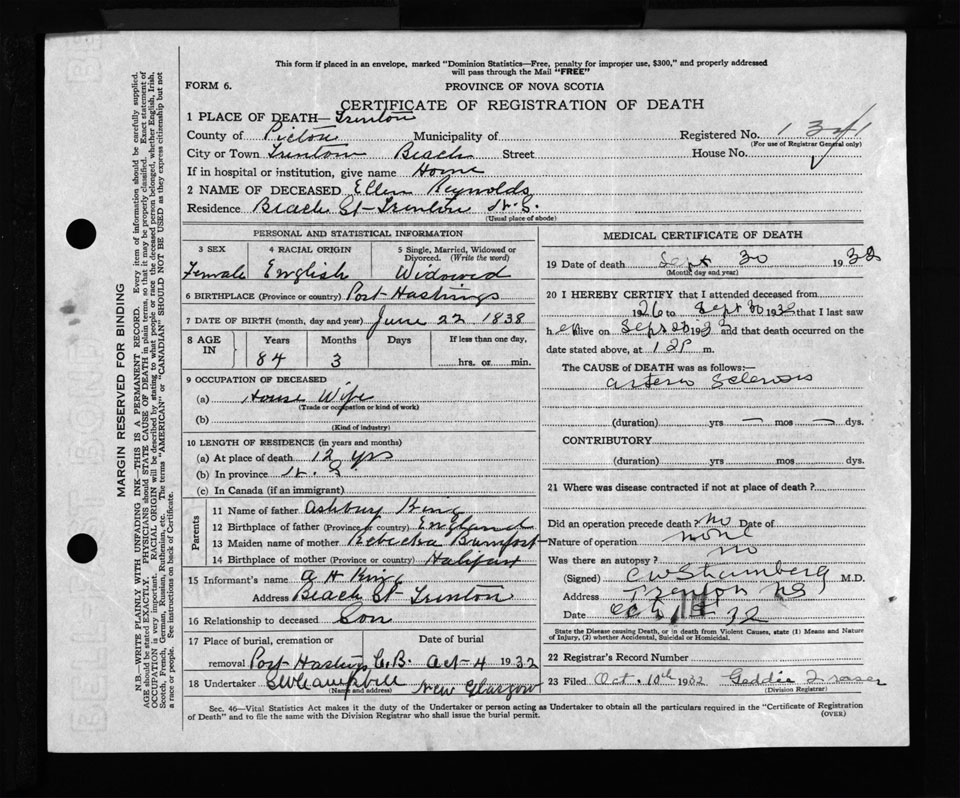 This form if placed in an envelope, marked "Dominion Statistics—Free, penalty for improper use, $300," and properly addressed
will pass through the Mail "FREE"
FORM 6.
PROVINCE OF NOVA SCOTIA
CERTIFICATE OF REGISTRATION OF DEATH
1 PLACE OF DEATH— Trenton
County of Pictou Municipality of Registered No. 1341
(For use of Registrar General only)
City or Town Trenton Beach Street House No.
If in hospital or institution, give name Home
2 NAME OF DECEASED Ellen Reynolds
Residence Beach St- Trenton N.S.
(Usual place of abode)
PERSONAL AND STATISTICAL INFORMATION
3 SEX 4 RACIAL ORIGIN 5 Single, Married, Widowed or
Divorced. (Write the word)
Female English Widowed
6 BIRTHPLACE (Province or country) Port Hastings
7 DATE OF BIRTH (month, day and year) June 22 1838
8 AGE IN Years Months Days If less than one day,
84 3 hrs. or min.
9 OCCUPATION OF DECEASED
(a) House Wife
(Trade or occupation or kind of work)
(b)
(Kind of industry)
10 LENGTH OF RESIDENCE (in years and months)
(a) At place of death 12 yrs
(b) In province N. S.
(c) In Canada (if an immigrant)
Parents
11 Name of father Ashbury King
12 Birthplace of father (Province or country) England
13 Maiden name of mother Rebecka
14 Birthplace of mother (Province or country) Halifax
15 Informant's name A H King
Address Beach St- Trenton
16 Relationship to deceased Son
17 Place of burial, cremation or Date of burial
removal Port Hastings C.B. Oct- 4 1932
18 Undertaker New Glasgow
(Name and address)
MEDICAL CERTIFICATE OF DEATH
19 Date of death Sept 30 1932
(Month, day and year)
20 I HEREBY CERTIFY that I attended deceased from
1926 to Sept 30 1932 that I last saw
her alive on Sept 1932 and that death occurred on the
date stated above, at 12P m.
The CAUSE of DEATH was as follows:—
Arterio Sclerosis
(duration) yrs — mos — dys.
CONTRIBUTORY
(duration) yrs mos dys.
21 Where was disease contracted if not at place of death?
Did an operation precede death? no Date of
Nature of operation none
Was there an autopsy? no
(Signed) M.D.
Address Trenton NS
Date Oct 32
State the Disease causing Death, or in death from Violent Causes, state (1) Means and Nature
of Injury, (2) whether Accidental, Suicidal or Homicidal.
22 Registrar's Record Number
23 Filed Oct. 10th 1932 Geddie Fraser
(Division Registrar)
Sec. 46—Vital Statistics Act makes it the duty of the Undertaker or person acting as Undertaker to obtain all the particulars required in the "Certificate of Registration
of Death" and to file the same with the Division Registrar who shall issue the burial permit.
(OVER)
MARGIN RESERVED FOR BINDING
N.B.—WRITE PLAINLY WITH UNFADING INK—THIS IS A PERMANENT RECORD. Every item of information should be carefully supplied.
AGE should be stated EXACTLY. PHYSICIANS should STATE CAUSE OF DEATH in plain terms, so that it may be properly classified. Exact statement of
OCCUPATION is very important. RACIAL ORIGIN will be described by stating to what people or race the deceased person belonged, whether English, Irish,
Scotch, French, German, Russian, Ruthenian, etc. The terms "AMERICAN" or "CANADIAN" SHOULD NOT BE USED as they express citizenship but not
a race or people. See instructions on back of Certificate.